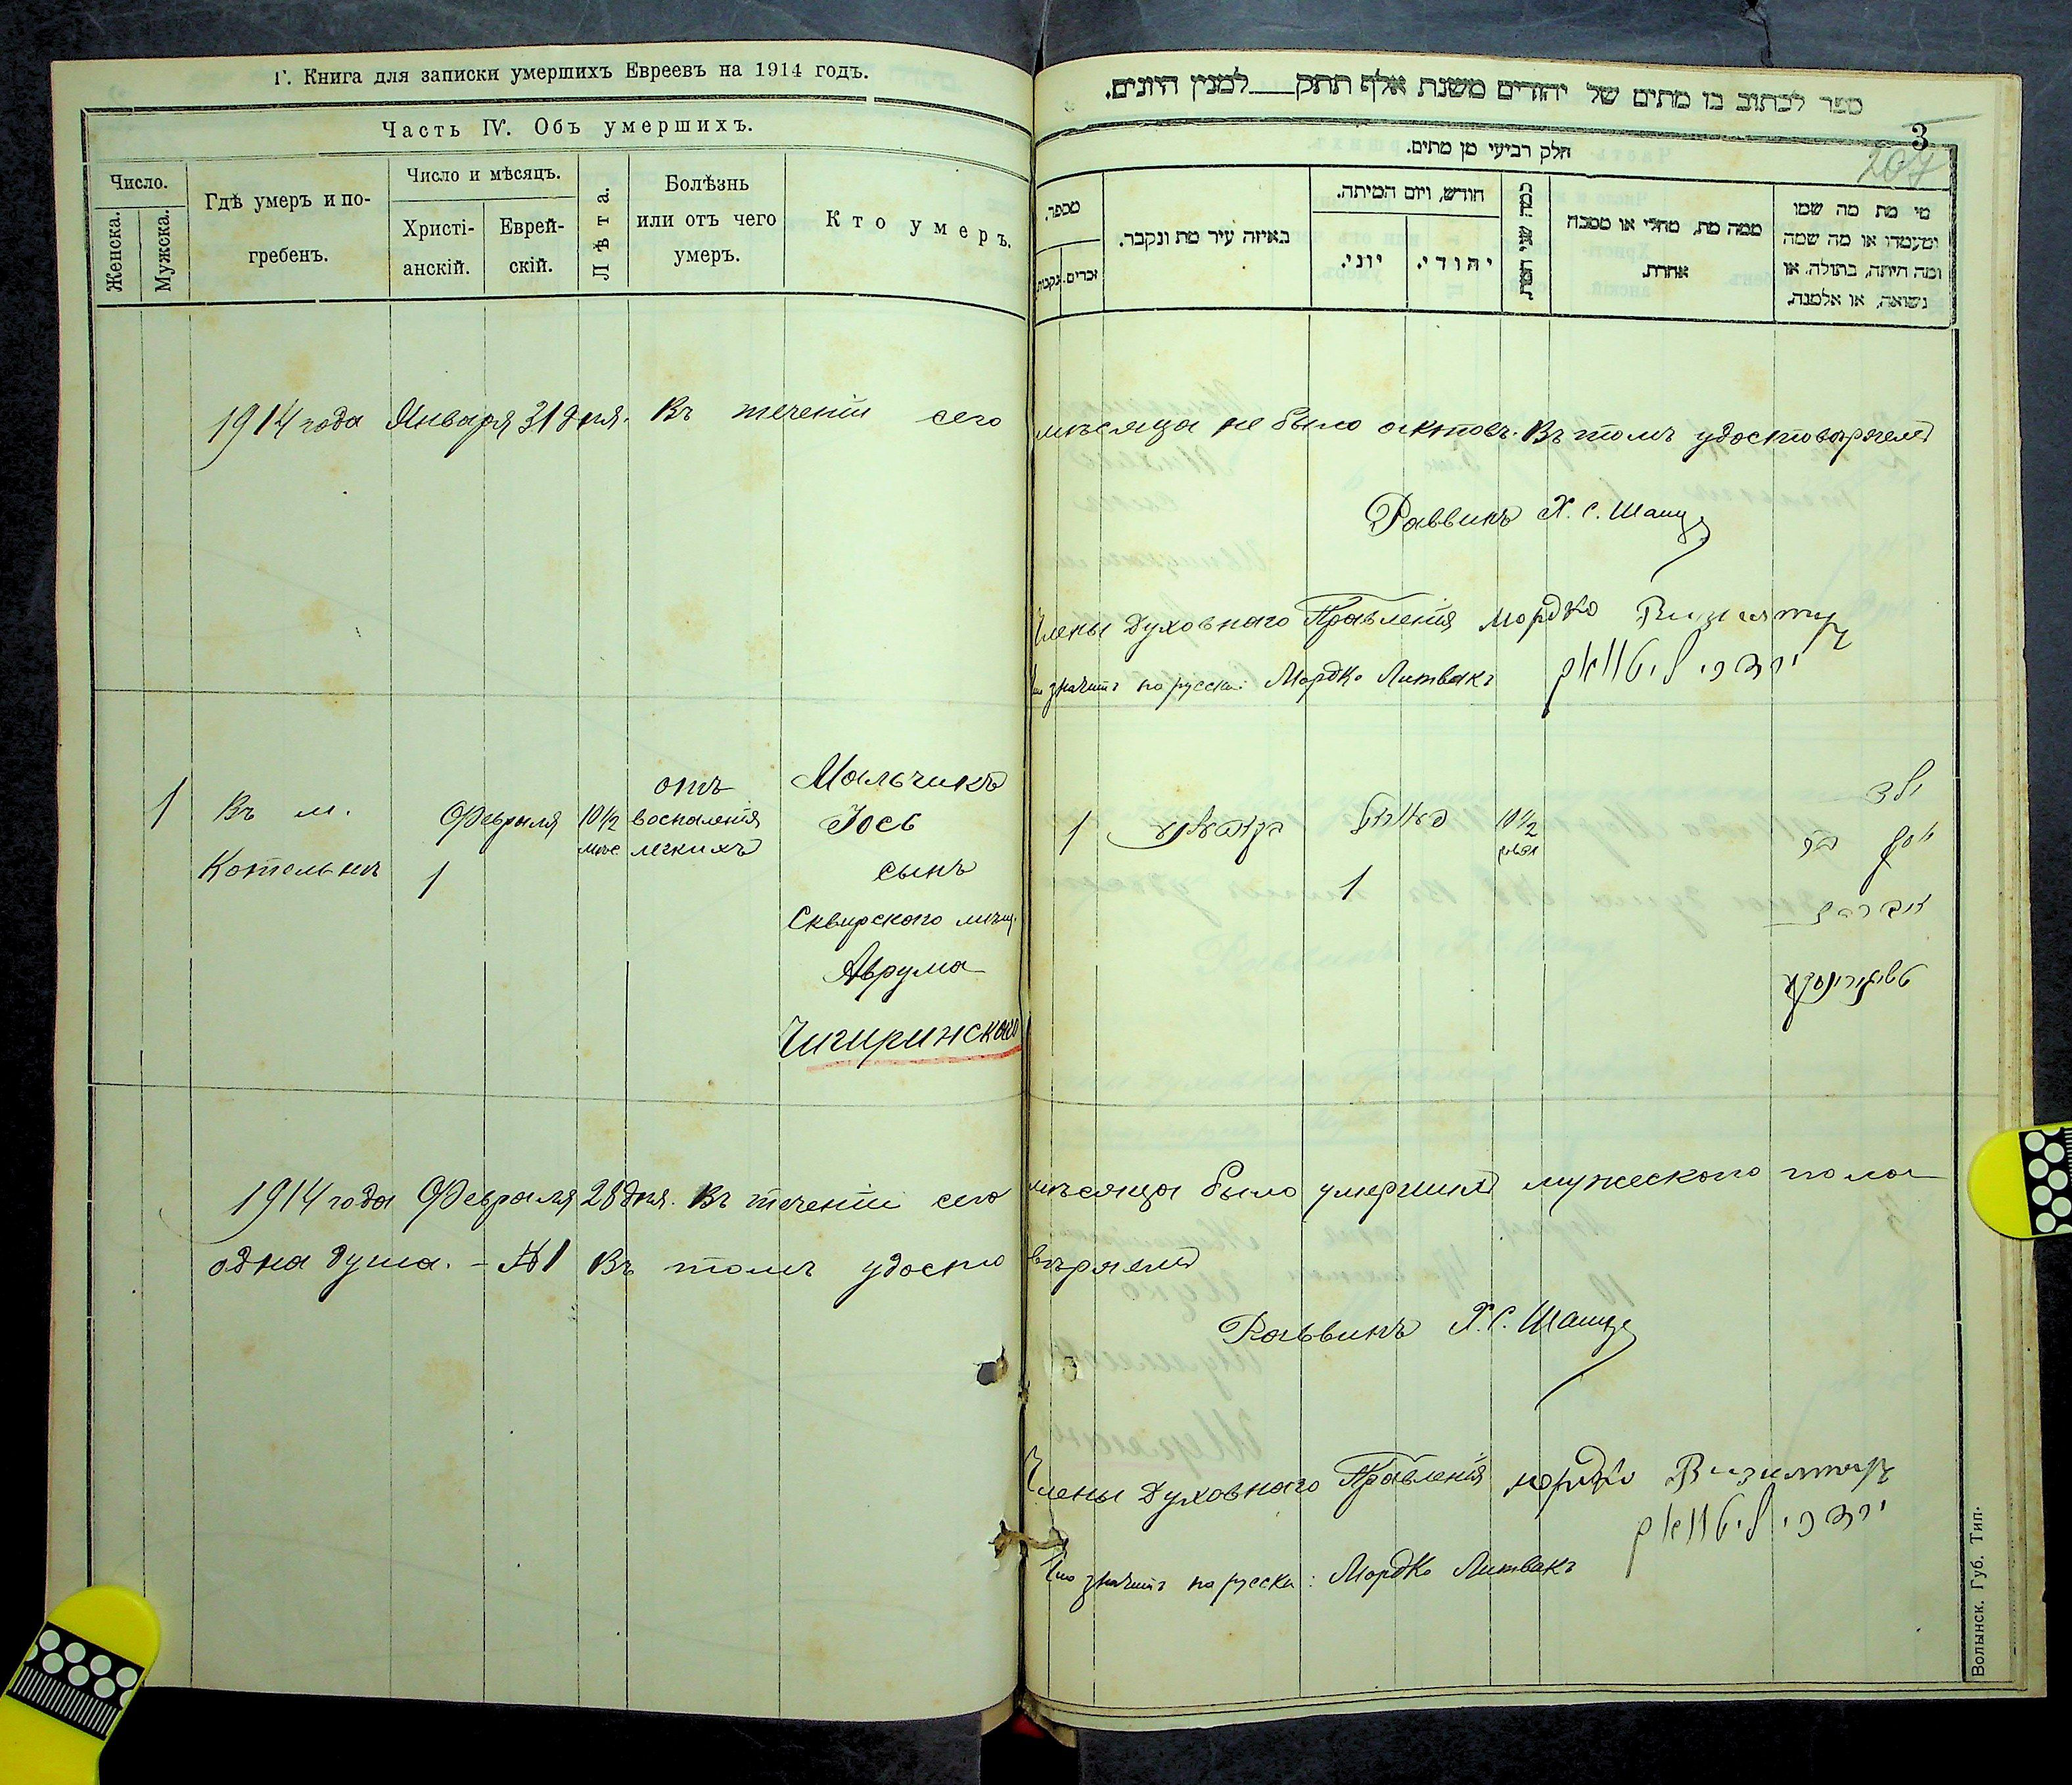 Г. Книга для записки умершихъ Евреевъ на 1914 годъ.
Часть IV. Объ умершихъ.
Число.
Женска.
Мужска.
Гдѣ умеръ и по-
гребенъ.
Число и мѣсяцъ.
Христі-
анскій.
Еврей-
скій.
Лѣта.
Болѣзнь
или отъ чего
умеръ.
Кто умеръ.
ספר לכתוב בו מתים של יהודים משנת אלף תתק למנין היונים.
3
207
חלק רביעי מן מתים.
מספר.
נקבות.
זכרים.
באיזה עיר מת ונקבר.
חודש, ויום המיתה.
יוני.
יהודי.
כמה שני המת
ממה מת, מחלי או מסבה
אחרת.
מי מת מה שמו
ומעמדו או מה שמה
ומה היתה, בתולה, או
נשואה, או אלמנה.
1914 года Января 31 дня. Въ теченіи сего мѣсяца не было актовъ. Въ томъ удостовѣряемъ
Раввинъ Х. С.
Члены Духовнаго Правленія Мордко
מרדכי ליטוואק
Что значитъ по русски: Мордко Литвакъ
1
Въ м.
Котельнѣ
Февраля
1
10½
мѣс
отъ
воспаленія
легкихъ
Мальчикъ
Іось
сынъ
Сквирского мѣщ.
Аврума
Чигиринскаго
1
קאטעלניא
פעווראל
1
10½
ילד
יוסף בן
אברהם
1914 года Февраля 28 дня. Въ теченіи сего мѣсяца было умершихъ мужескаго пола
одна душа. — №1 Въ томъ удостовѣряемъ
Раввинъ Х. С.
Члены Духовнаго Правленія Мордко
מרדכי ליטוואק
Что значитъ по русски: Мордко Литвакъ
Волынск. Губ. Тип.